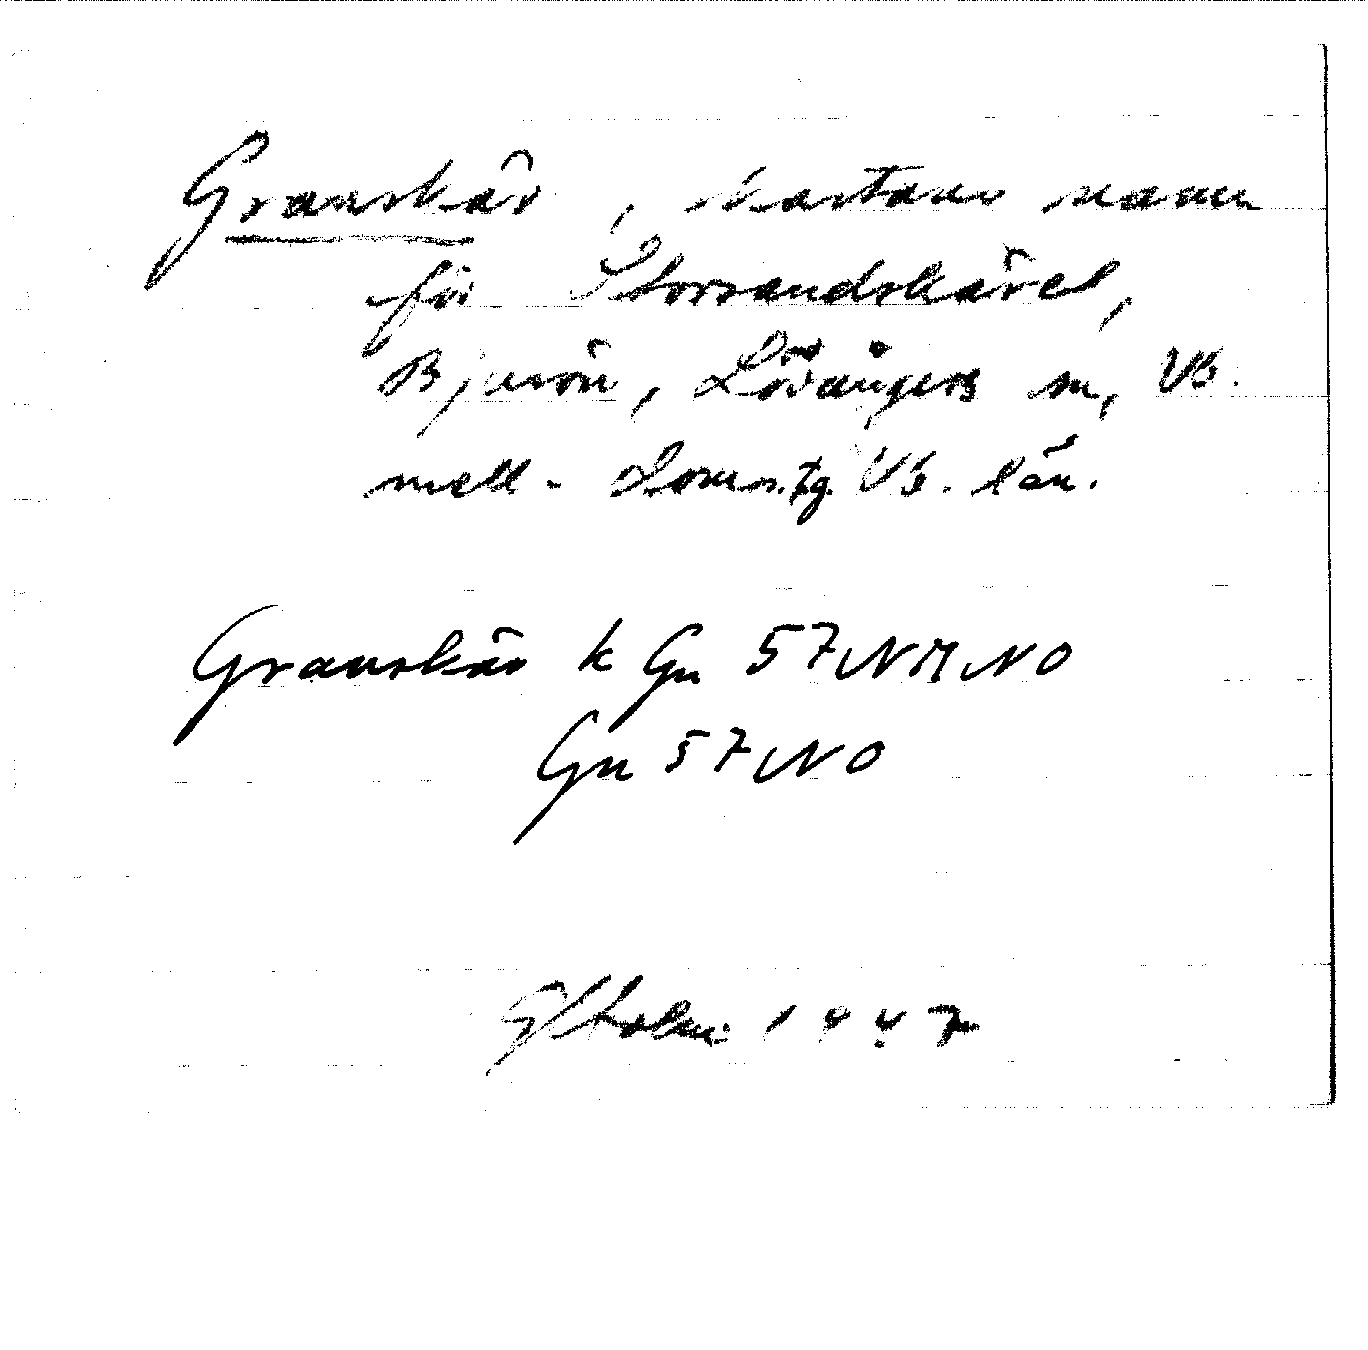 Granskär, kartans namn
för Storsandskäret,
Bjurön, Lövångers sn, Vb.
mell- doms.tg. Vb. län.
Granskär k Gn 57 NM NO
Gn 57 NO
Gfholm 1947